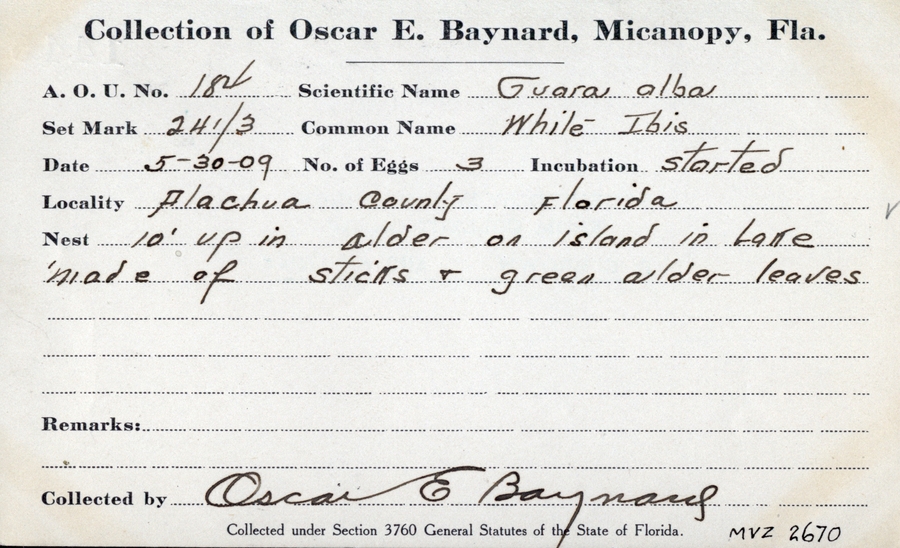 Collection of Oscar E. Baynard, Micanopy, Fla.
A. O. U. No. 184 Scientific Name Guara alba
Set Mark 241/3 Common Name White Ibis
Date 5-30-09 No. of Eggs 3 Incubation started
Locality Alachua County Florida
Nest 10' up in alder on island in Lake
made of sticks & green alder leaves
Remarks:
Collected by Oscar E Baynard
Collected under Section 3760 General Statutes of the State of Florida.
MVZ 2670